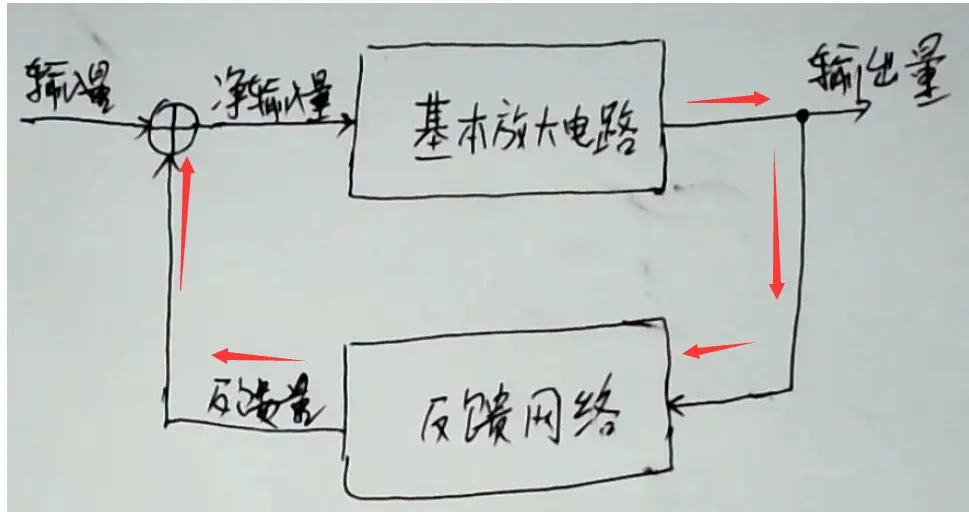 输入量
净输入量
基本放大电路
输出量
反馈量
反馈网络